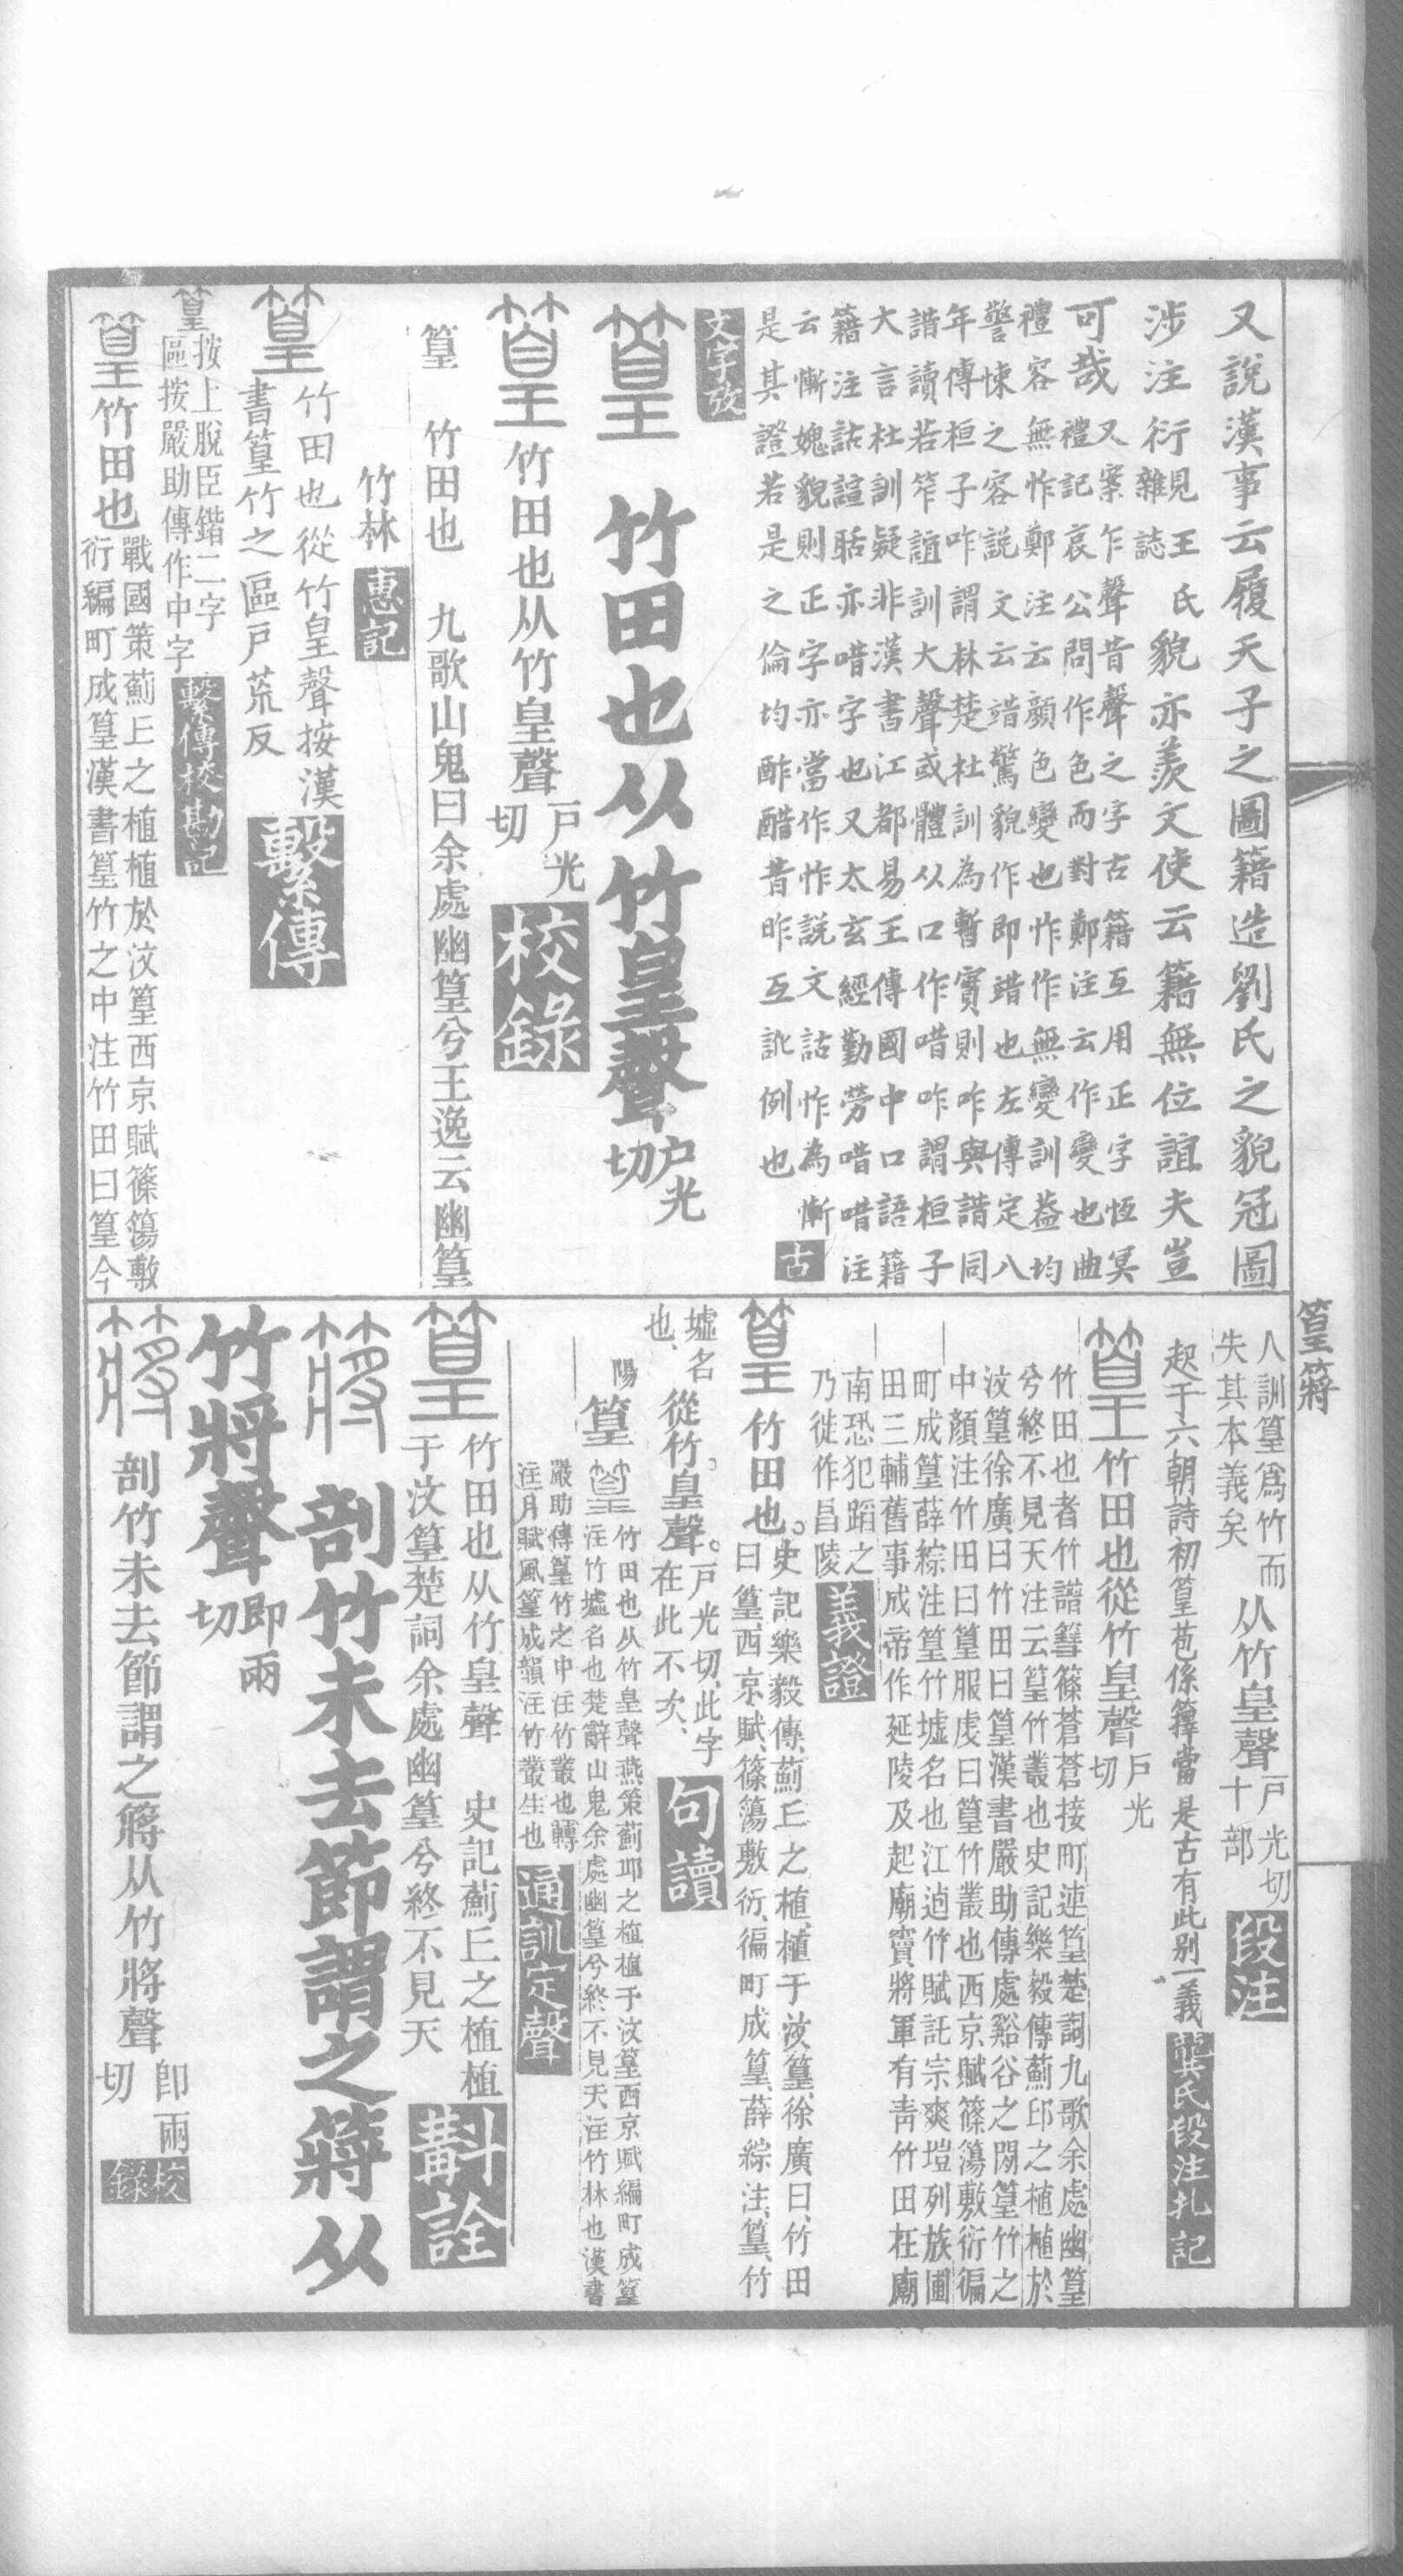 又說漢事云履天子之圖籍造劉氏之貌冠圖
涉注衍見王氏雜誌貌亦羨文使云籍無位誼夫豈
可哉又案乍聲昔聲之字古籍互用正字恆冥
禮記哀公問作色而對鄭注云作變也曲
禮容無怍鄭注云顏色變也怍作無變訓葢均
警悚之容說文云䜺驚貌作即䜺也左傳定八
年傳桓子咋謂林楚杜訓為暫實則咋與諎同
諎讀若笮誼訓大聲或體从口作唶咋謂桓子
大言杜訓疑非漢書江都易王傳國中口語籍
籍注詁諠聒亦唶字也又太玄經勤勞唶唶注
云慚媿貌則正字亦當作怍說文詁怍為慚
是其證若是之倫均酢醋昔昨互訛例也
古文字攷
篁 竹田也从竹皇聲戶光切
篁竹田也从竹皇聲戶光切校錄
篁 竹田也 九歌山鬼曰余處幽篁兮王逸云幽篁
竹林惠記
篁竹田也從竹皇聲按漢
書篁竹之區戶荒反繫傳
篁按上脫臣鍇二字
區按嚴助傳作中字繫傳校勘記
篁竹田也戰國策薊丘之植植於汶篁西京賦篠簜敷
衍編町成篁漢書篁竹之中注竹田曰篁今
篁䉃
人訓篁爲竹而
失其本義矣从竹皇聲戶光切十部段注
起于六朝詩初篁苞係籜當是古有此别一義龔氏段注札記
篁竹田也從竹皇聲戶光切
竹田也者竹譜篲篠蒼蒼接町連篁楚詞九歌余處幽篁
兮終不見天注云篁竹叢也史記樂毅傳薊邱之植植於
汶篁徐廣曰竹田曰篁漢書嚴助傳處谿谷之閒篁竹之
中顏注竹田曰篁服虔曰篁竹叢也西京賦篠簜敷衍徧
町成篁薛綜注篁竹墟名也江逌竹賦託宗爽塏列族圃
田三輔舊事成帝作延陵及起廟竇將軍有青竹田在廟
南恐犯蹈之
乃徙作昌陵義證
篁竹田也。史記樂毅傳、薊丘之植、植于汶篁、徐廣曰、竹田
曰篁、西京賦、篠簜敷衍、徧町成篁、薛綜注、篁、竹
墟名
也、從竹。皇聲。戶光切、此字
在此不次、句讀
陽 篁篁竹田也从竹皇聲燕策薊邱之植植于汶篁西京賦編町成篁
注竹墟名也楚辭山鬼余處幽篁兮終不見天注竹林也漢書
嚴助傳篁竹之中注竹叢也轉
注月賦風篁成韻注竹叢生也通訓定聲
篁竹田也从竹皇聲 史記薊丘之植植
于汶篁楚詞余處幽篁兮終不見天斠詮
䉃 剖竹未去節謂之䉃从
竹將聲即兩切
䉃 剖竹未去節謂之䉃从竹將聲即兩切校錄